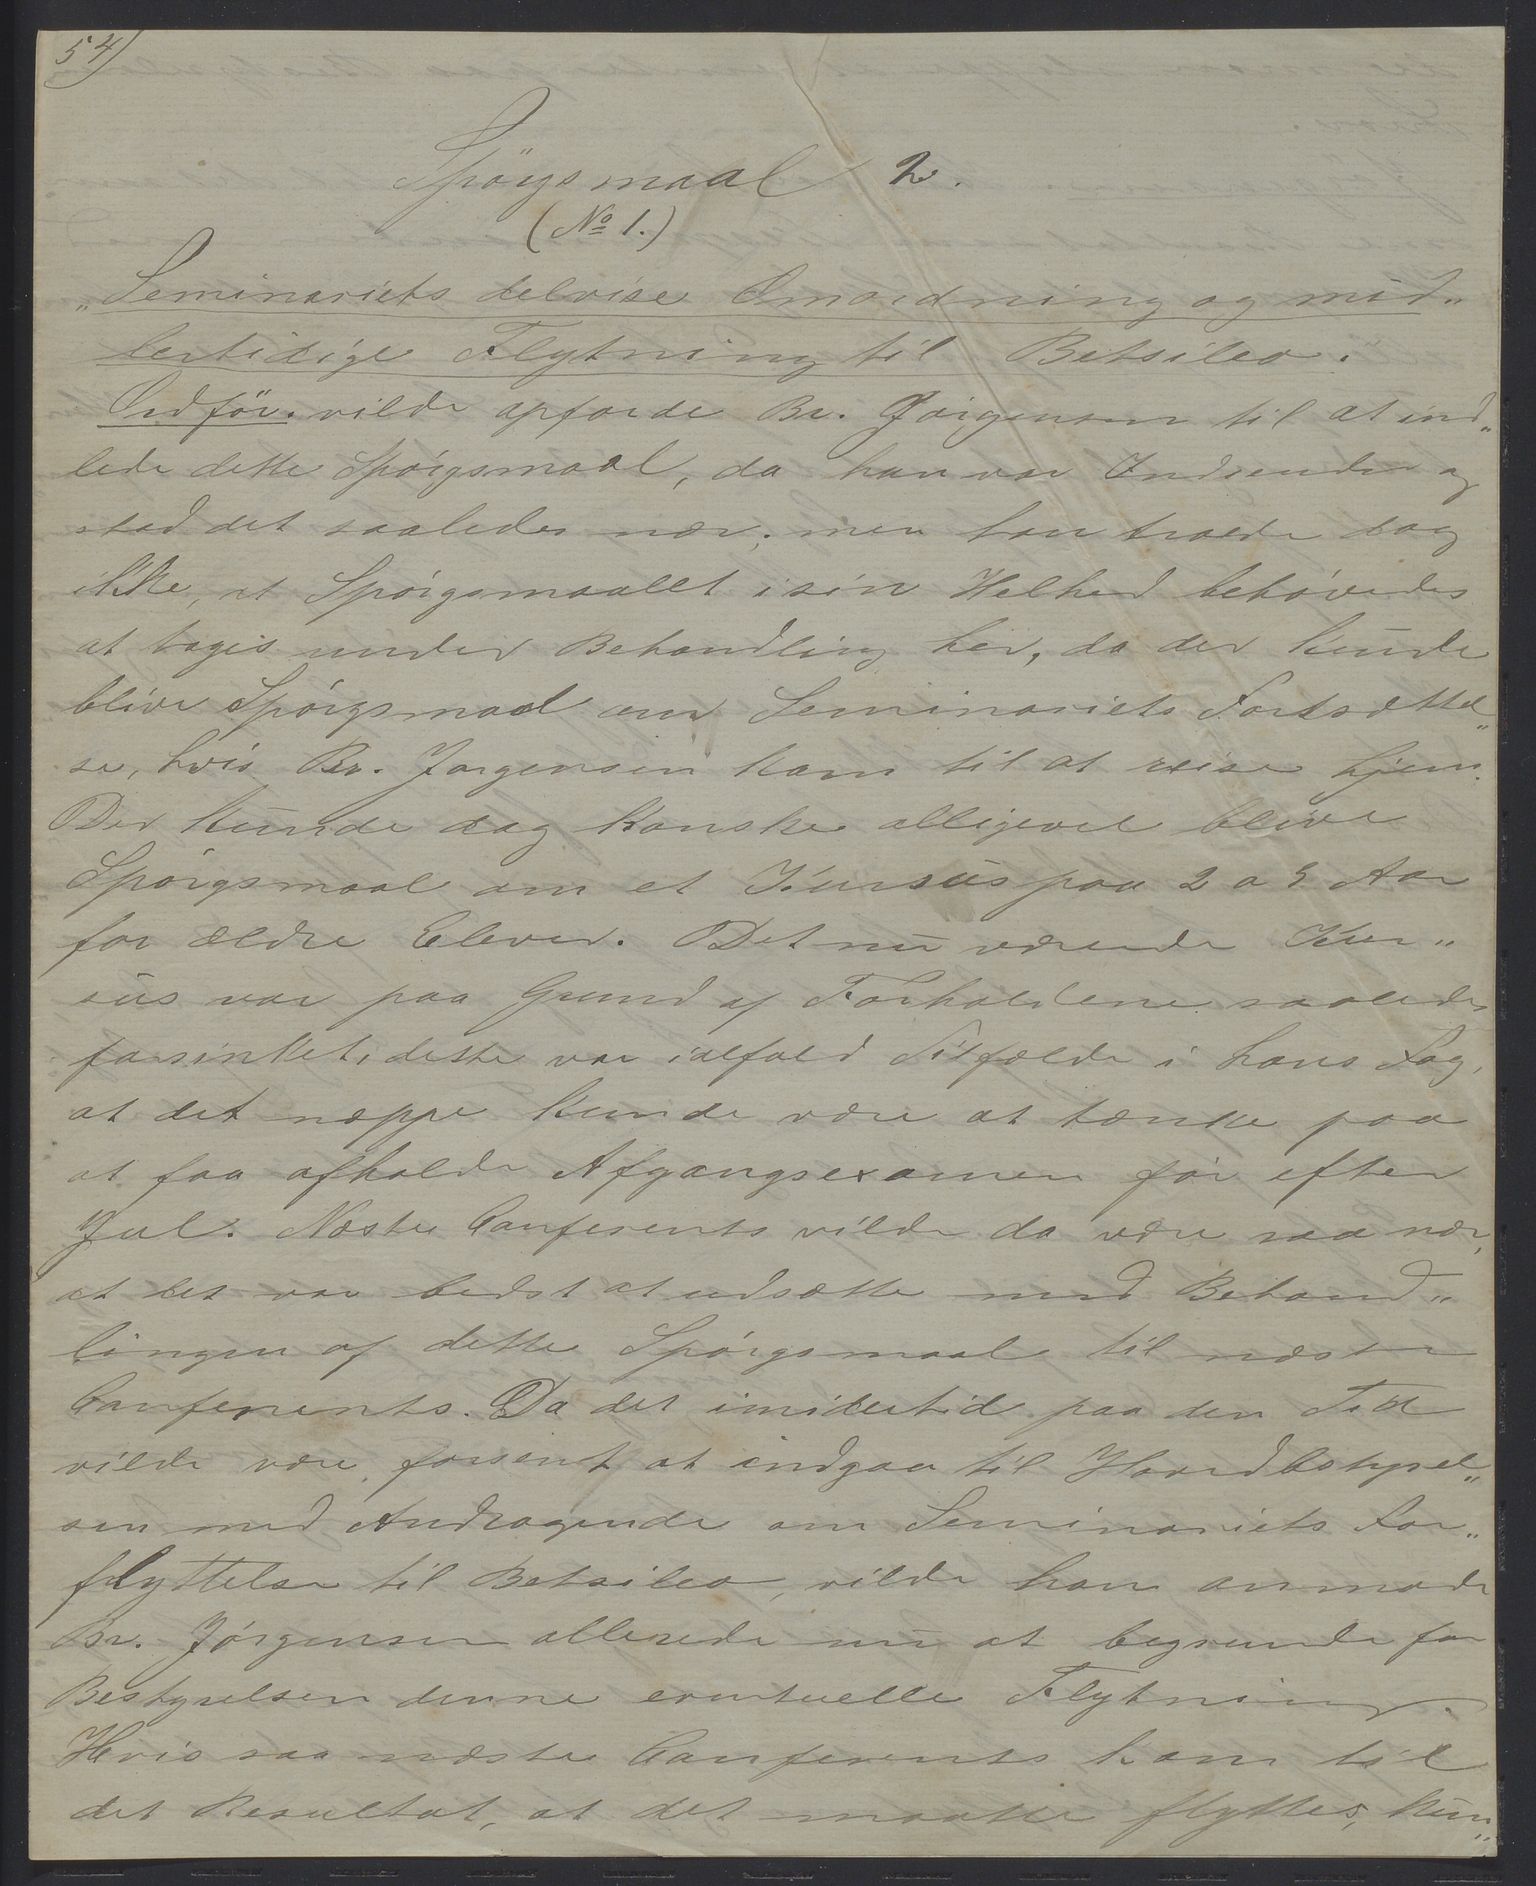 54)
Spörgsmaal 2.
(No 1.)
„Seminariets delvise Omordning og mid„
lertidige Flytning til Betsileo.
Ordför. vilde opfordre Br. Jörgensen til at ind„
lede dette Spörgsmaal, da han var Indsender og
stod det saaledes nær; men han troede dog
ikke, at Spörgsmaalet i sin Helhed behövedes
at tages under Behandling her, da der kunde
blive Spörgsmaal om Seminariets Fortsættel„
se, hvis Br. Jorgensen kom til at reise hjem.
Der kunde dog kanske alligevel blive
Spörgsmaal om et Kursus paa 2 a 3 Aar
for ældre Elever. Det nu værende Kur„
sus var paa Grund af Forholdene saaledes
forsinket, dette var ialfald Tilfælde i hans Fag,
at det neppe kunde være at tænke paa
at faa afholde Afgangsexamen för efter
Jul. Næste Conferents vilde da være saa nær,
at det var bedst at udsætte med Behand„
lingen af dette Spörgsmaal til næste
Conferents. Da det imidlertid paa den Tid
vilde være forsent at indgaa til Hovedbestyrel„
sen med Andragende om Seminariets For„
flyttelse til Betsileo, vilde han anmode
Br. Jörgensen allerede nu at begrunde for
Bestyrelsen denne eventuelle Flytning.
Hvis saa næste Conferents kom til
det Resultat, at det maatte flyttes, kun„